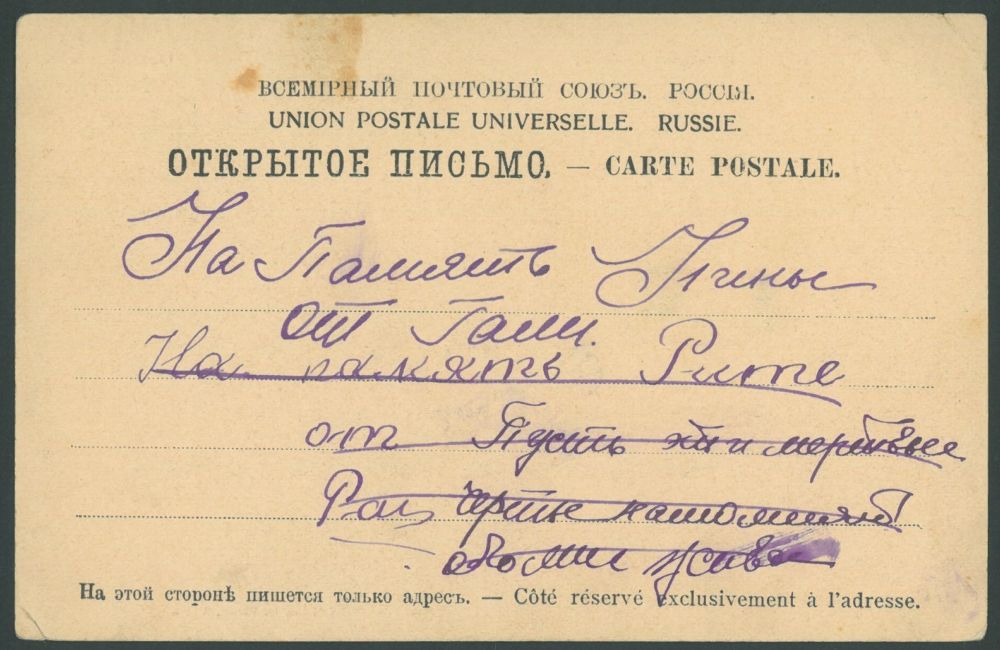 ВСЕМІРНЫЙ ПОЧТОВЫЙ СОЮЗЪ. РОССІЯ.
UNION POSTALE UNIVERSELLE. RUSSIE.
ОТКРЫТОЕ ПИСЬМО. — CARTE POSTALE.
На Память Нины
От Гали.
На память Рите
от Пусть эти мертвые
Раи черты напомнят
обо мне
На этой сторонѣ пишется только адресъ. — Côté réservé exclusivement à l'adresse.